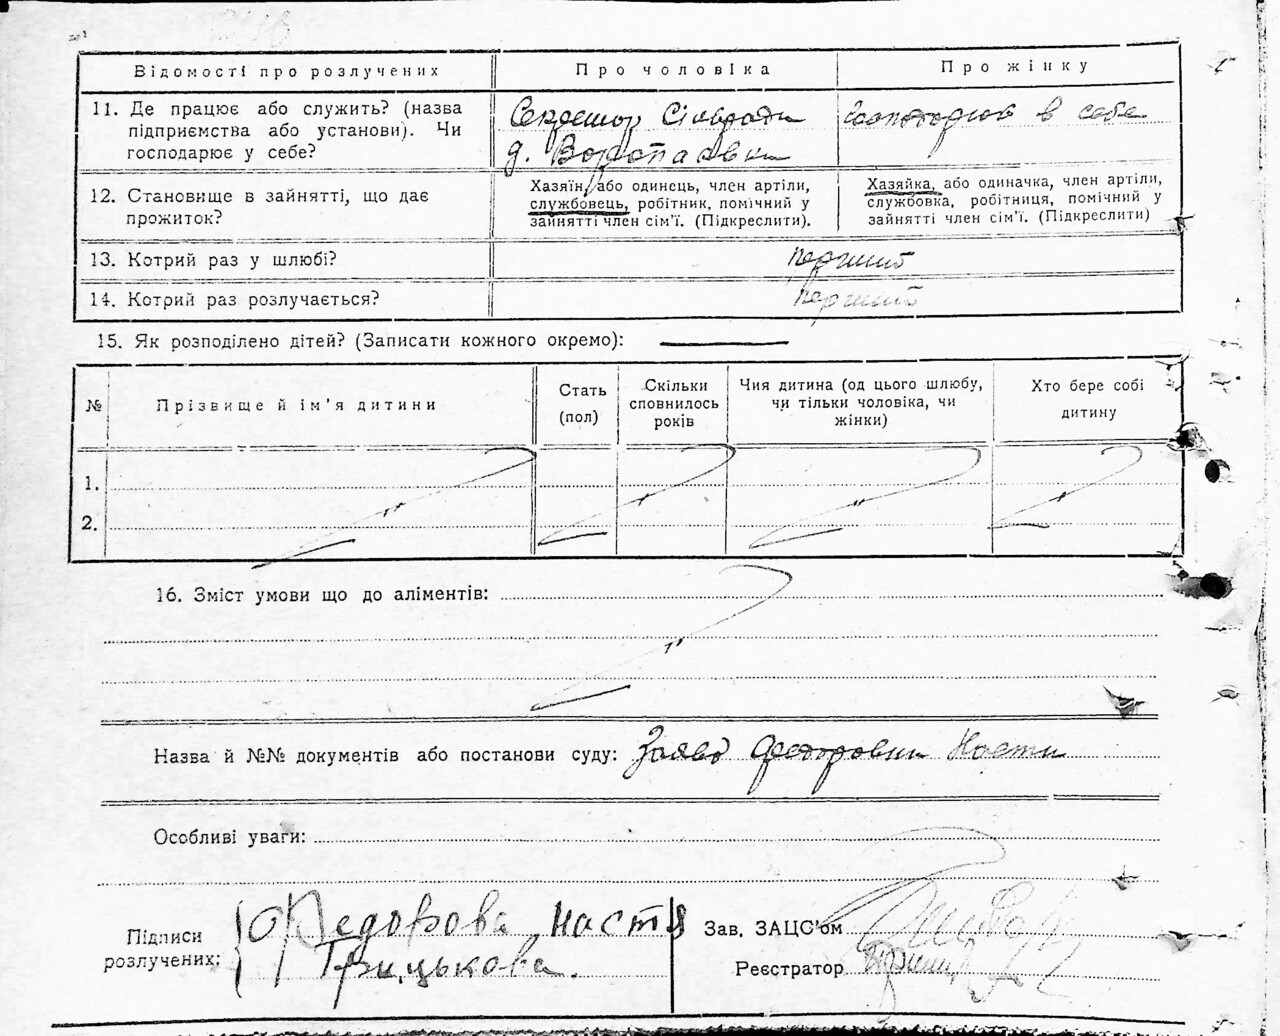 Відомості про розлучених
Про чоловіка
Про жінку
11. Де працює або служить? (назва
підприємства або установи). Чи
господарює у себе?
Секретар Сільради
д. Воропаївки
господарює в себе
12. Становище в зайнятті, що дає
прожиток?
Хазяїн, або одинець, член артілі,
службовець, робітник, помічний у
зайнятті член сім'ї. (Підкреслити).
Хазяйка, або одиначка, член артілі,
службовка, робітниця, помічний у
зайнятті член сім'ї. (Підкреслити)
13. Котрий раз у шлюбі?
перший
14. Котрий раз розлучається?
перший
15. Як розподілено дітей? (Записати кожного окремо):
№
Прізвище й ім'я дитини
Стать
(пол)
Скільки
сповнилось
років
Чия дитина (од цього шлюбу,
чи тільки чоловіка, чи
жінки)
Хто бере собі
дитину
1.
2.
16. Зміст умови що до аліментів:
Назва й №№ документів або постанови суду: Заява Федоровни Насти
Особливі уваги:
Підписи
розлучених:
Федорова Настя
Грицькова.
Зав. ЗАЦС'ом
Реєстратор